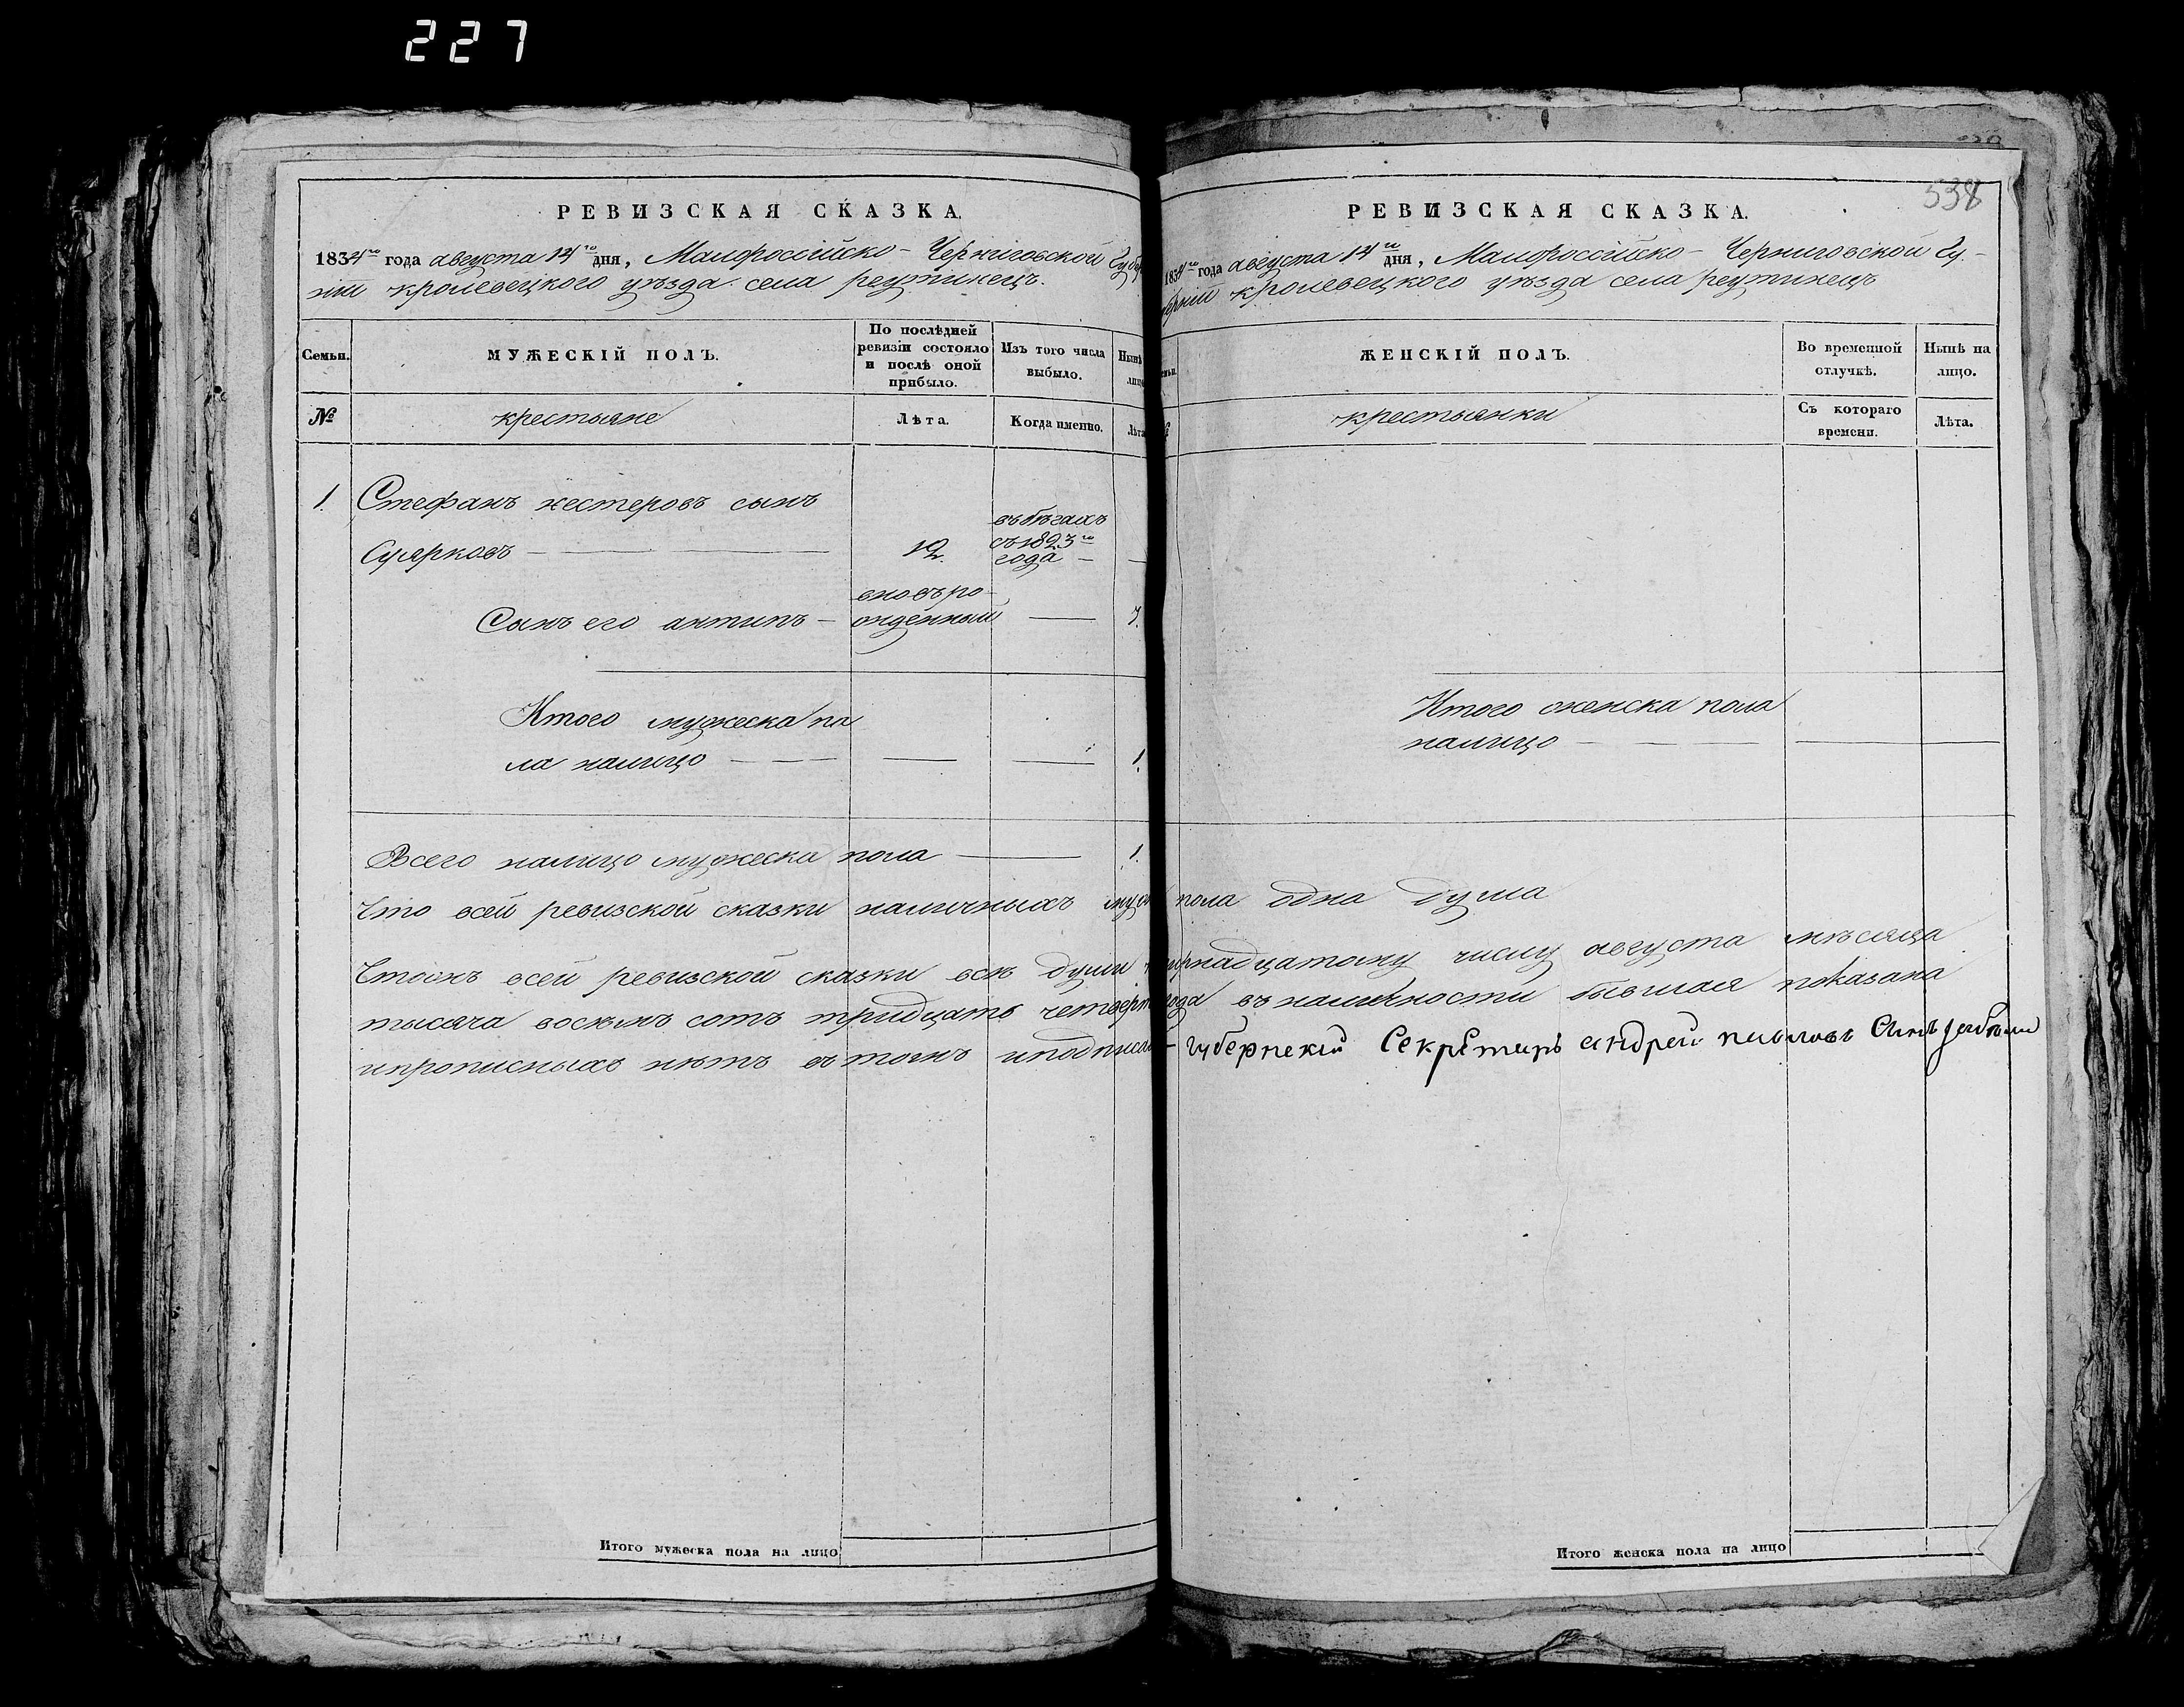 227
538
РЕВИЗСКАЯ СКАЗКА.
1834го года августа 14го дня, Малороссійско-Черниговской Губер
ніи кролевецкого уѣзда села реутинецъ.
Семьи.
МУЖЕСКІЙ ПОЛЪ.
По послѣдней ревизіи состояло и послѣ оной прибыло.
Изъ того числа выбыло.
Нынѣ
лицо
№
крестьяне
Лѣта.
Когда именно.
Лѣта
1. Стефанъ нестеровъ сынъ
въбѣгахъ
съ 1823го
Суярковъ — 12. года —
вновъ ро-
Сынъ его антипъ — жденный — 7.
Итого мужеска по
ла налицо — 1.
Всего налицо мужеска пола — 1.
РЕВИЗСКАЯ СКАЗКА.
1834го года августа 14го дня, Малороссійско-Черниговской Гу-
берніи кролевецкого уѣзда села реутинецъ
ЖЕНСКІЙ ПОЛЪ.
Во временной отлучкѣ.
Нынѣ на лицо.
крестьянки
Съ котораго времени.
Лѣта.
Итого женска пола
налицо —
Что всей ревизской сказки наличныхъ муж пола одна душа
Чтовъ всей ревизской сказки всѣ души числу августа мѣсяца
тысяча восемь сотъ тридцать четверт года въ наличности бывшая показана
ипрописныхъ нѣтъ въ томъ иподписа губернскій Секретарь андрей павловъ Синъ
Итого мужеска пола на лицо
Итого женска пола на лицо